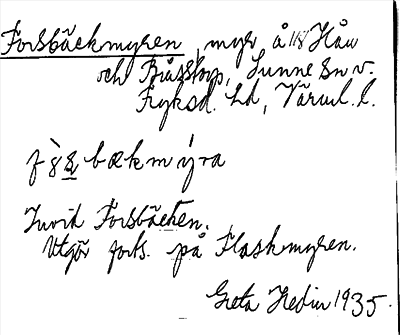 Forsbäckmyren, myr å Håu
och Båsstorp, Sunne sn v.
Fryksd. hd, Värml. l.
bækmýra
Invid Forsbäcken.
Utgör forts. på Flaskmyren.
Greta Hedin 1935.